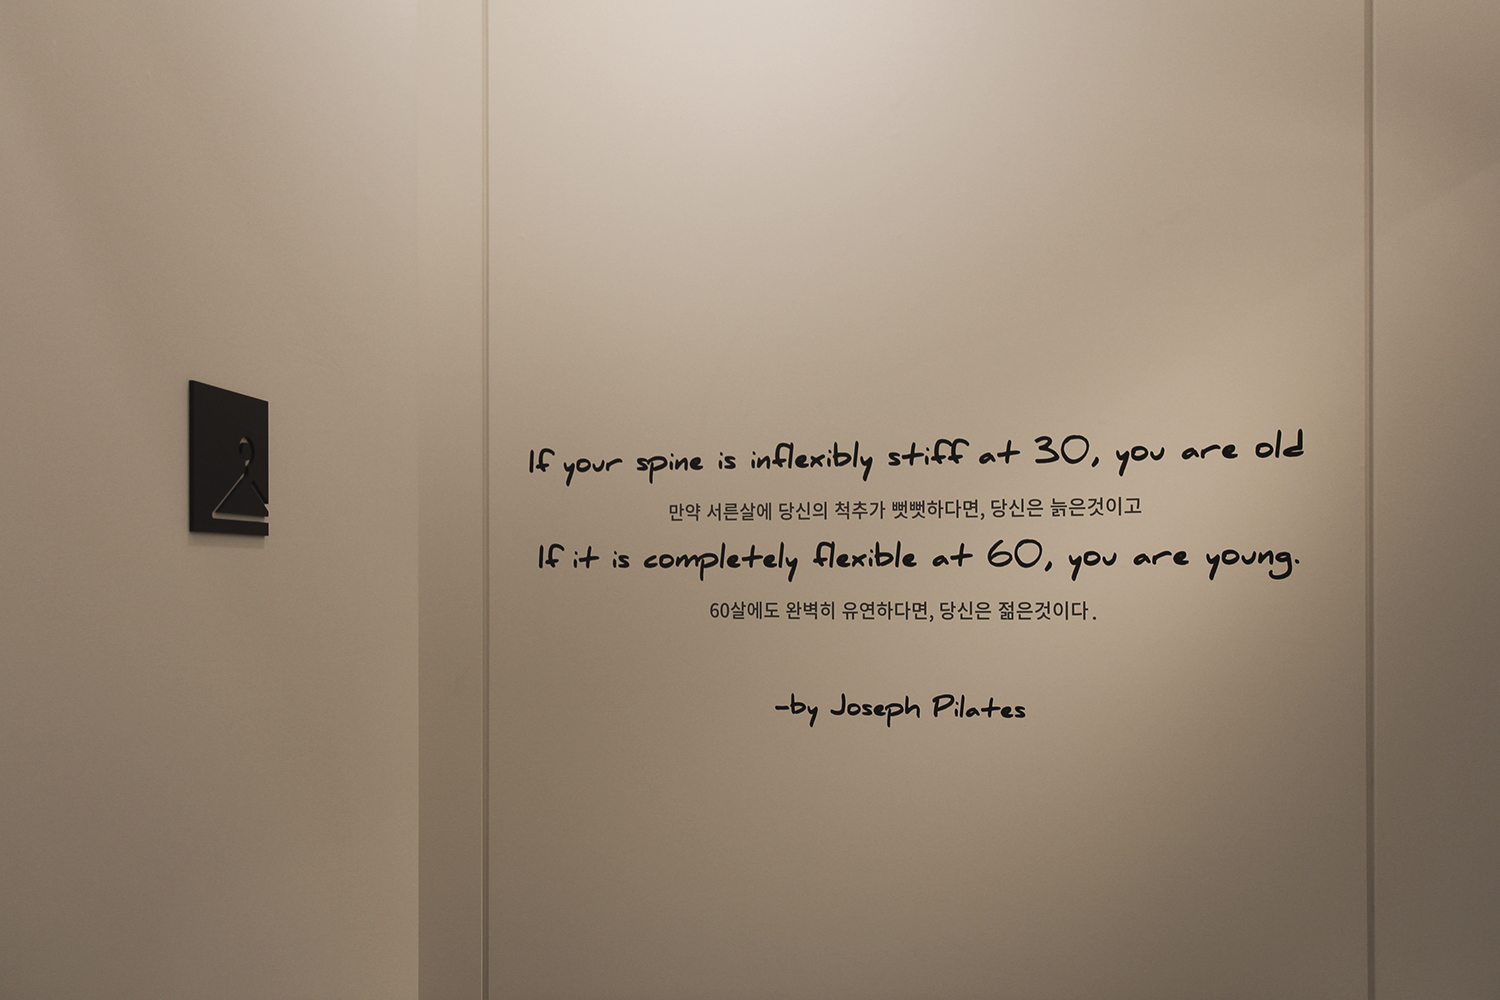 If your spine is inflexibly stiff at 30, you are old
만약 서른살에 당신의 척추가 뻣뻣하다면, 당신은 늙은것이고
If it is completely flexible at 60, you are young.
60살에도 완벽히 유연하다면, 당신은 젊은것이다.
-by Joseph Pilates